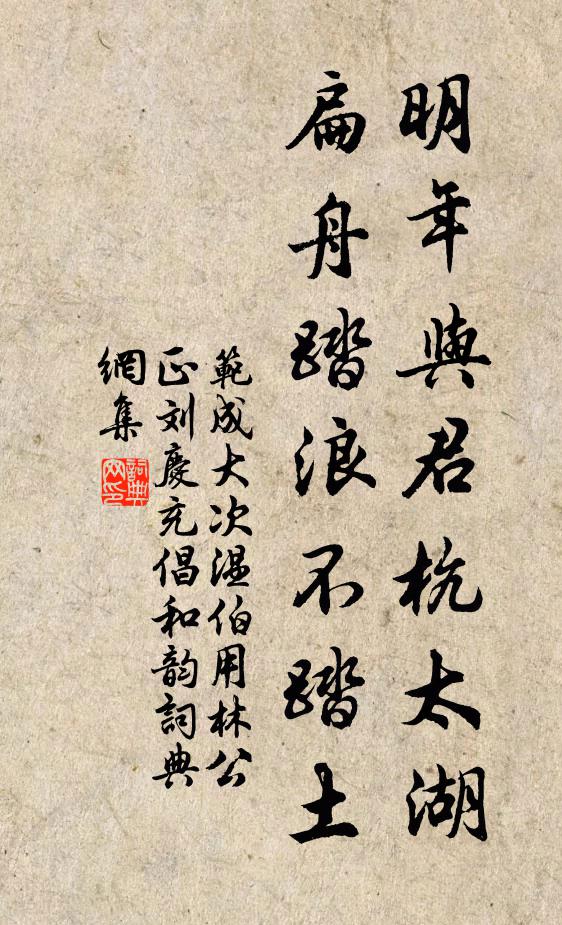 明年與君杭太湖
扁舟踏浪不踏土
範成大次温伯用林公
正刘慶充倡和韵詞典
網集
詞典
网印